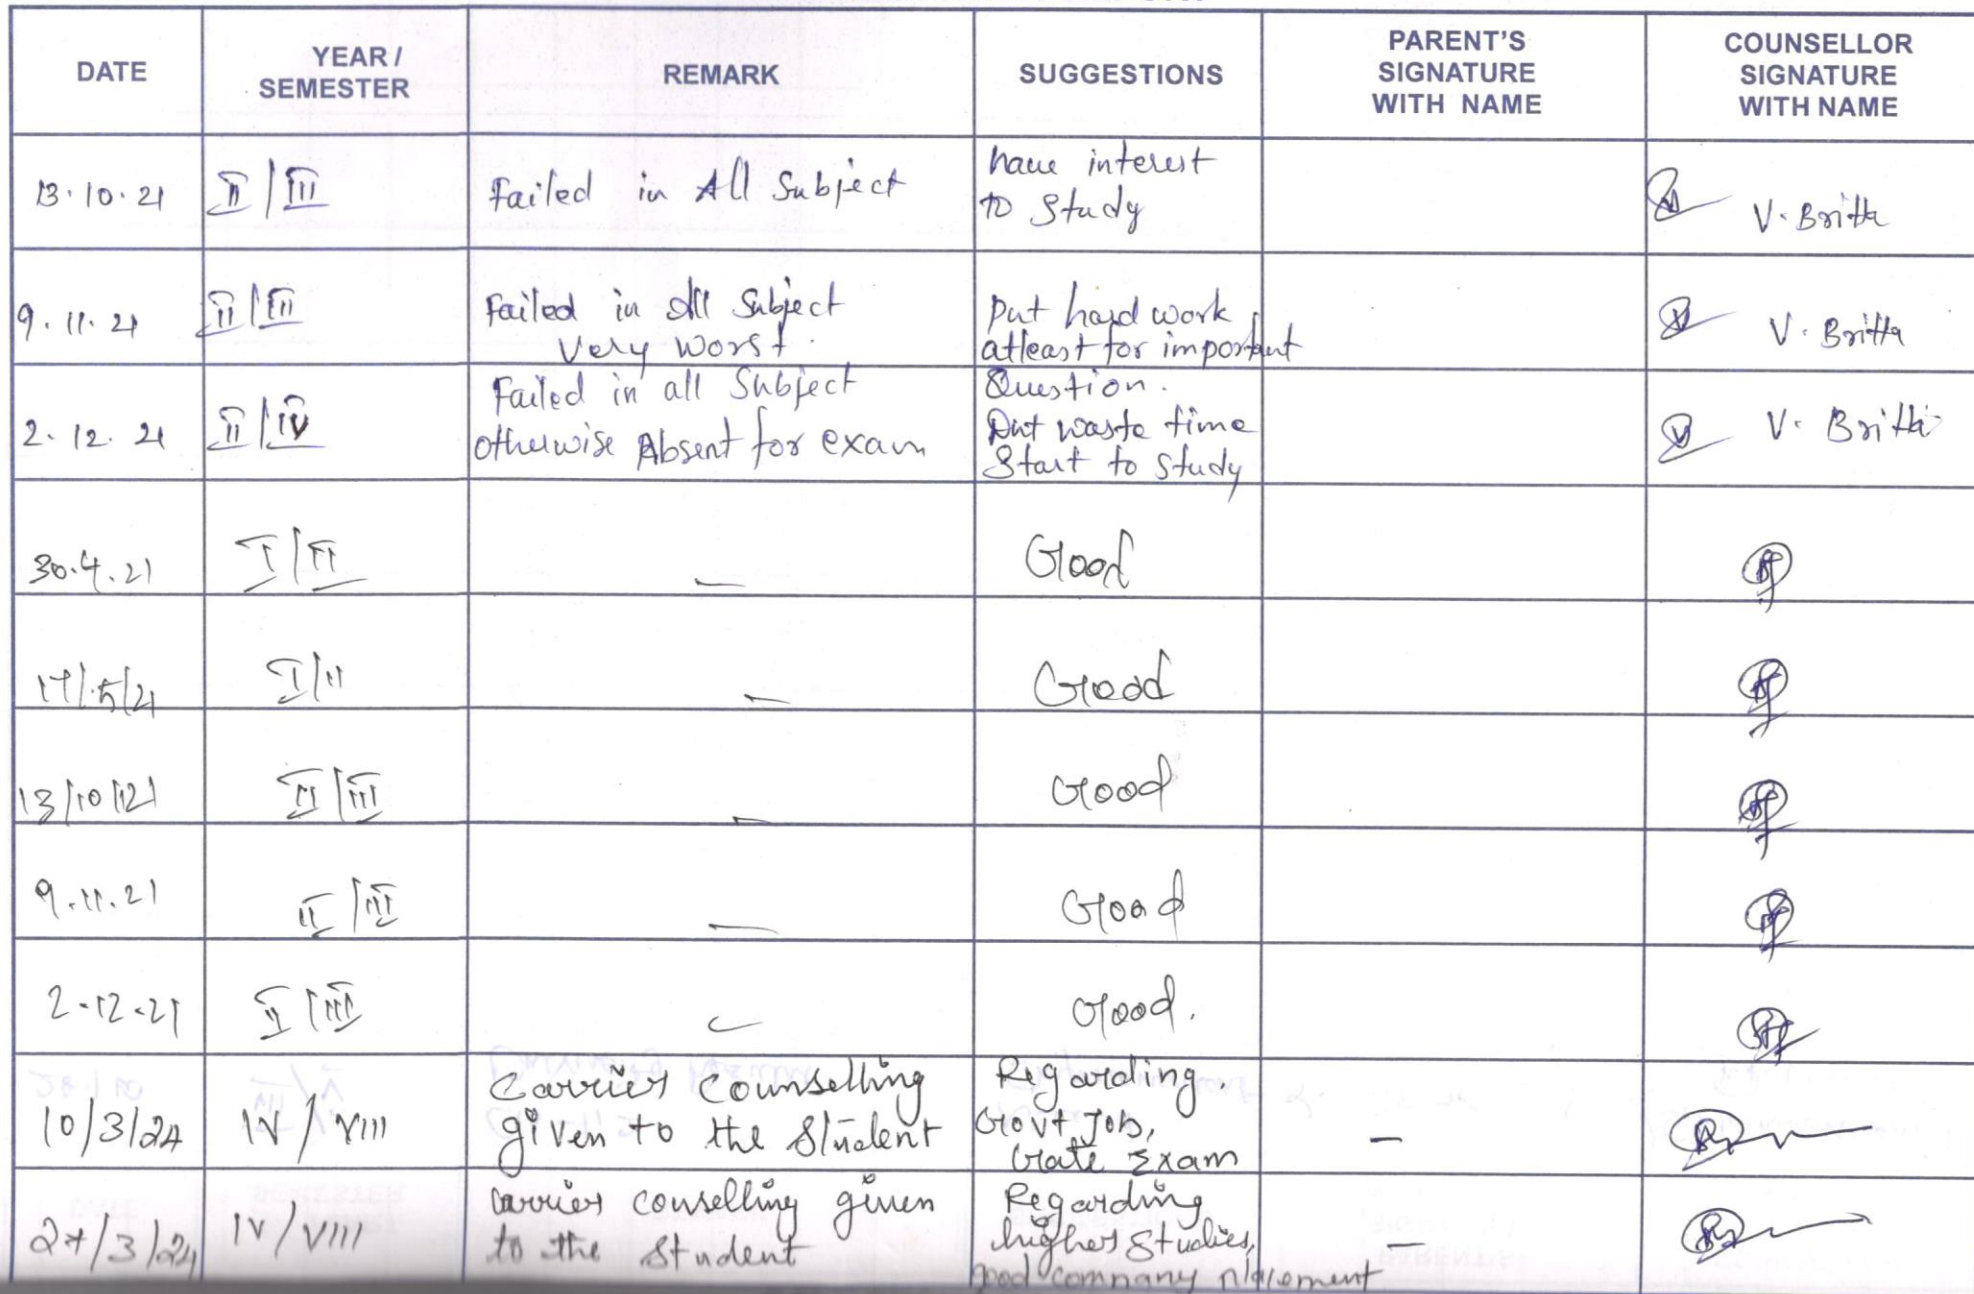 DATE YEAR / SEMESTER REMARK SUGGESTIONS PARENT'S SIGNATURE WITH NAME COUNSELLOR SIGNATURE WITH NAME
13.10.21 II/III Failed in All Subject have interest to Study V. Britta
9.11.21 II/III Failed in All Subject Very Worst. put hard work atleast for important Question.
V. Britta
2.12.21 II/IV Failed in all Subject otherwise Absent for exam Dnt waste time Start to study V. Britta
30.4.21 I/II — Good
17/5/21 I/II — Good
13/10/21 II/III — Good
9.11.21 II/III — Good
2.12.21 II/III — Good.
10/3/24 IV/VIII Carrier Counselling given to the Student Regarding. Govt Job, Gate Exam —
27/3/24 IV/VIII Carrier couselling given to the Student Regarding higher Studies, good company placement —